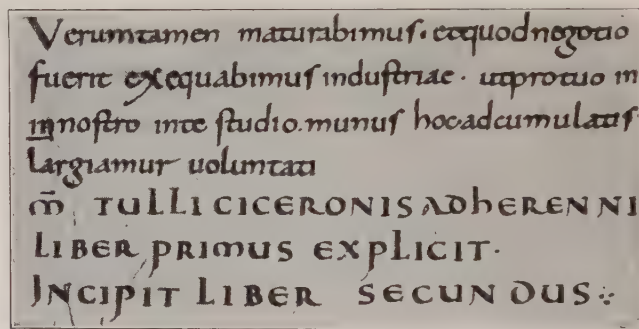 Verumtamen maturabimus · etquodnegotio
fuerit exequabimus industriae · utprotuo in
in nostro inte studio. munus hoc·adcumulatis·
largiamur uoluntati
m̄ TULLI CICERONIS ADhERENNI
LIBER PRIMUS EXPLICIT·
INCIPIT LIBER SECUNDUS